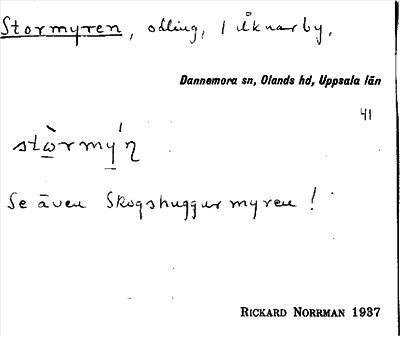 Stormyren, odling, i Åknarby.
Dannemora sn, Olands hd, Uppsala län
41
stὼrmy´ń̥
Se även Skogshuggurmyren!
RICKARD NORRMAN 1937